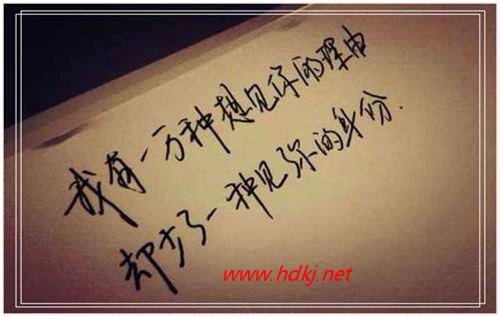 我有一万种想见你的理由
却少了一种见你的身份.
www.hdkj.net